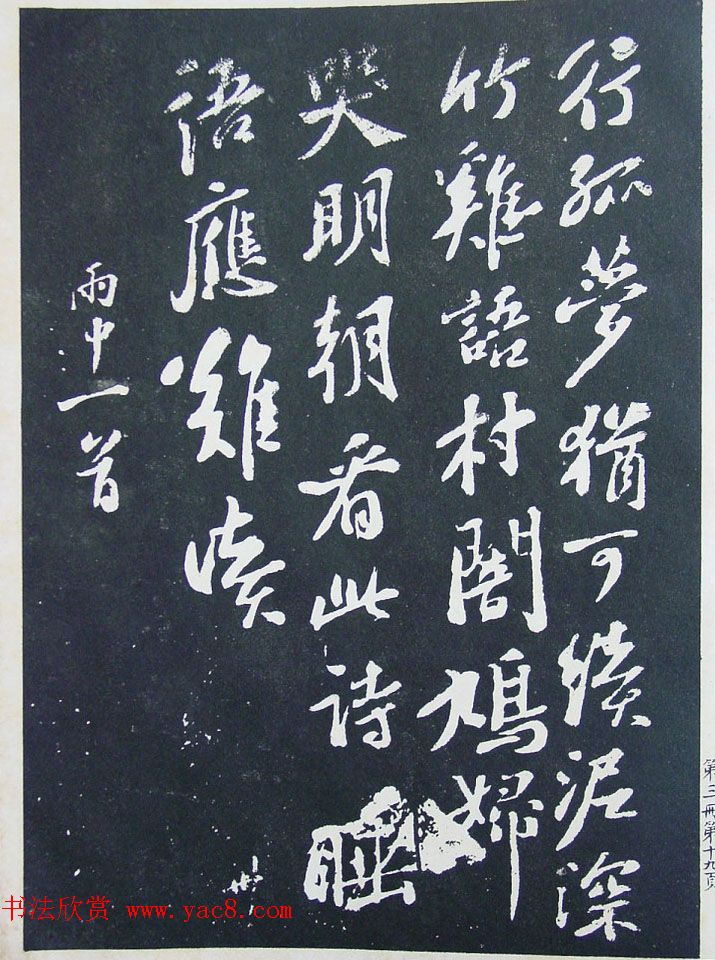 行孤夢猶可續泥深
竹雞語村闇鳩婦
哭明朝看此詩睡
語應難讀
雨中一首
第三冊第十九頁
书法欣赏 www.yac8.com